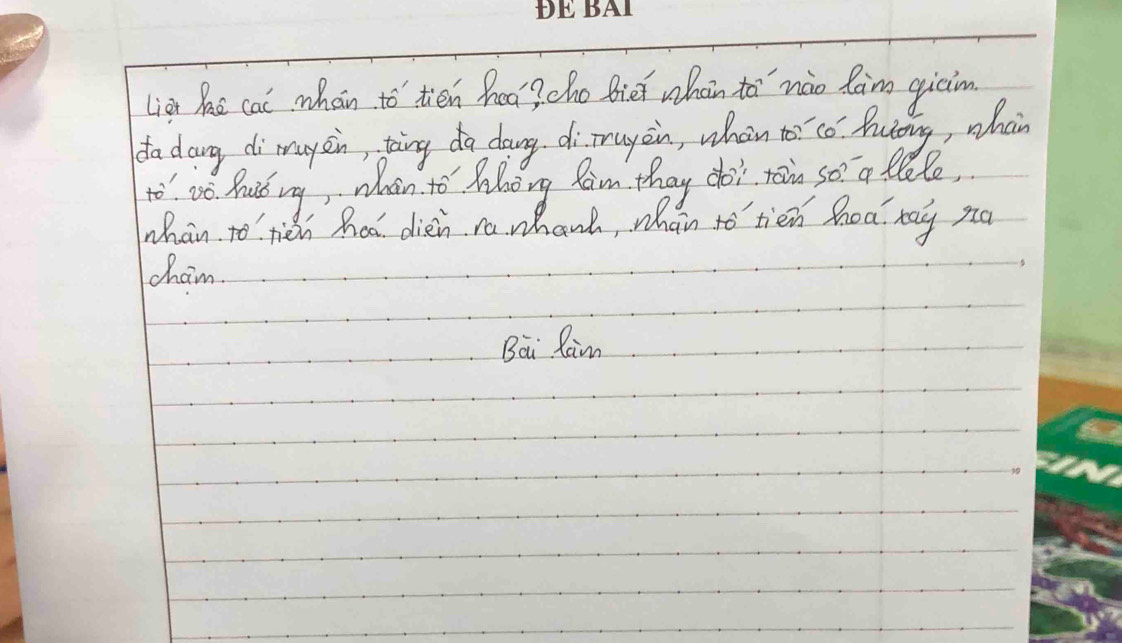 ĐỀ BÀI
Liệt kê các nhân tố tiến hoá? cho biết nhân tố nào làm giảm
đa dạng di truyền, tăng đa dạng di truyền, nhân tố có hướng, nhân
tố vô hướng, nhân tố không làm thay đổi tần số allele,
nhân tố tiến hoá diễn ra nhanh, nhân tố tiến hoá xảy ra
chậm.
5
Bài làm
10
INI